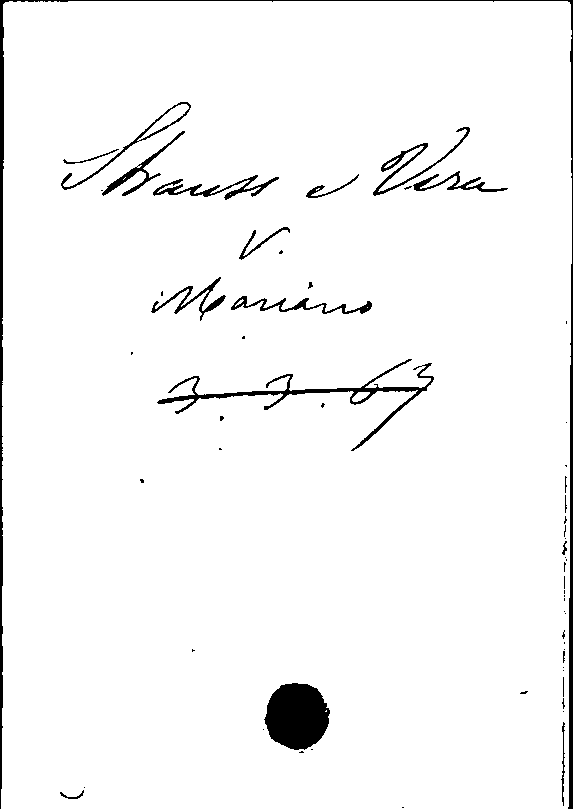 Strauss e Vera
V.
Mariano
3. 3. 63